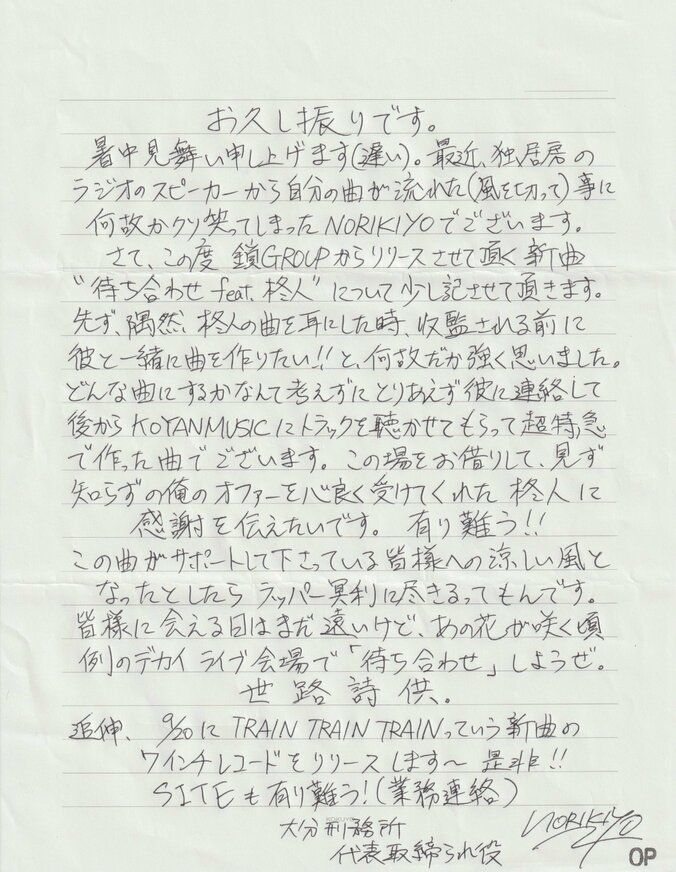 お久し振りです。
暑中見舞い申し上げます(遅い)。最近、独居房の
ラジオのスピーカーから自分の曲が流れた(風を切って)事に
何故かクソ笑ってしまったNORIKIYOでございます。
さて、この度 鎖GROUPからリリースさせて頂く新曲
"待ち合わせ feat. 柊人"について少し記させて頂きます。
先ず、隅然、柊人の曲を耳にした時、収監される前に
彼と一緒に曲を作りたい!!と、何故だか強く思いました。
どんな曲にするかなんて考えずにとりあえず彼に連絡して
後からKOYANMUSICにトラックを聴かせてもらって超特急
で作った曲でございます。この場をお借りして、見ず
知らずの俺のオファーを心良く受けてくれた柊人に
感謝を伝えたいです。有り難う!!
この曲がサポートして下さっている皆様への涼しい風と
なったとしたら ラッパー冥利に尽きるってもんです。
皆様に会える日はまだ遠いけど、あの花が咲く頃
例のデカイ ライブ会場で「待ち合わせ」しようぜ。
世路詩供。
追伸、9/20に TRAIN TRAIN TRAINっていう新曲の
7インチレコードをリリースします〜 是非!!
SITEも有り難う!(業務連絡)
大分刑務所
KOKUYO
代表取締られ役
NORIKIYO
OP